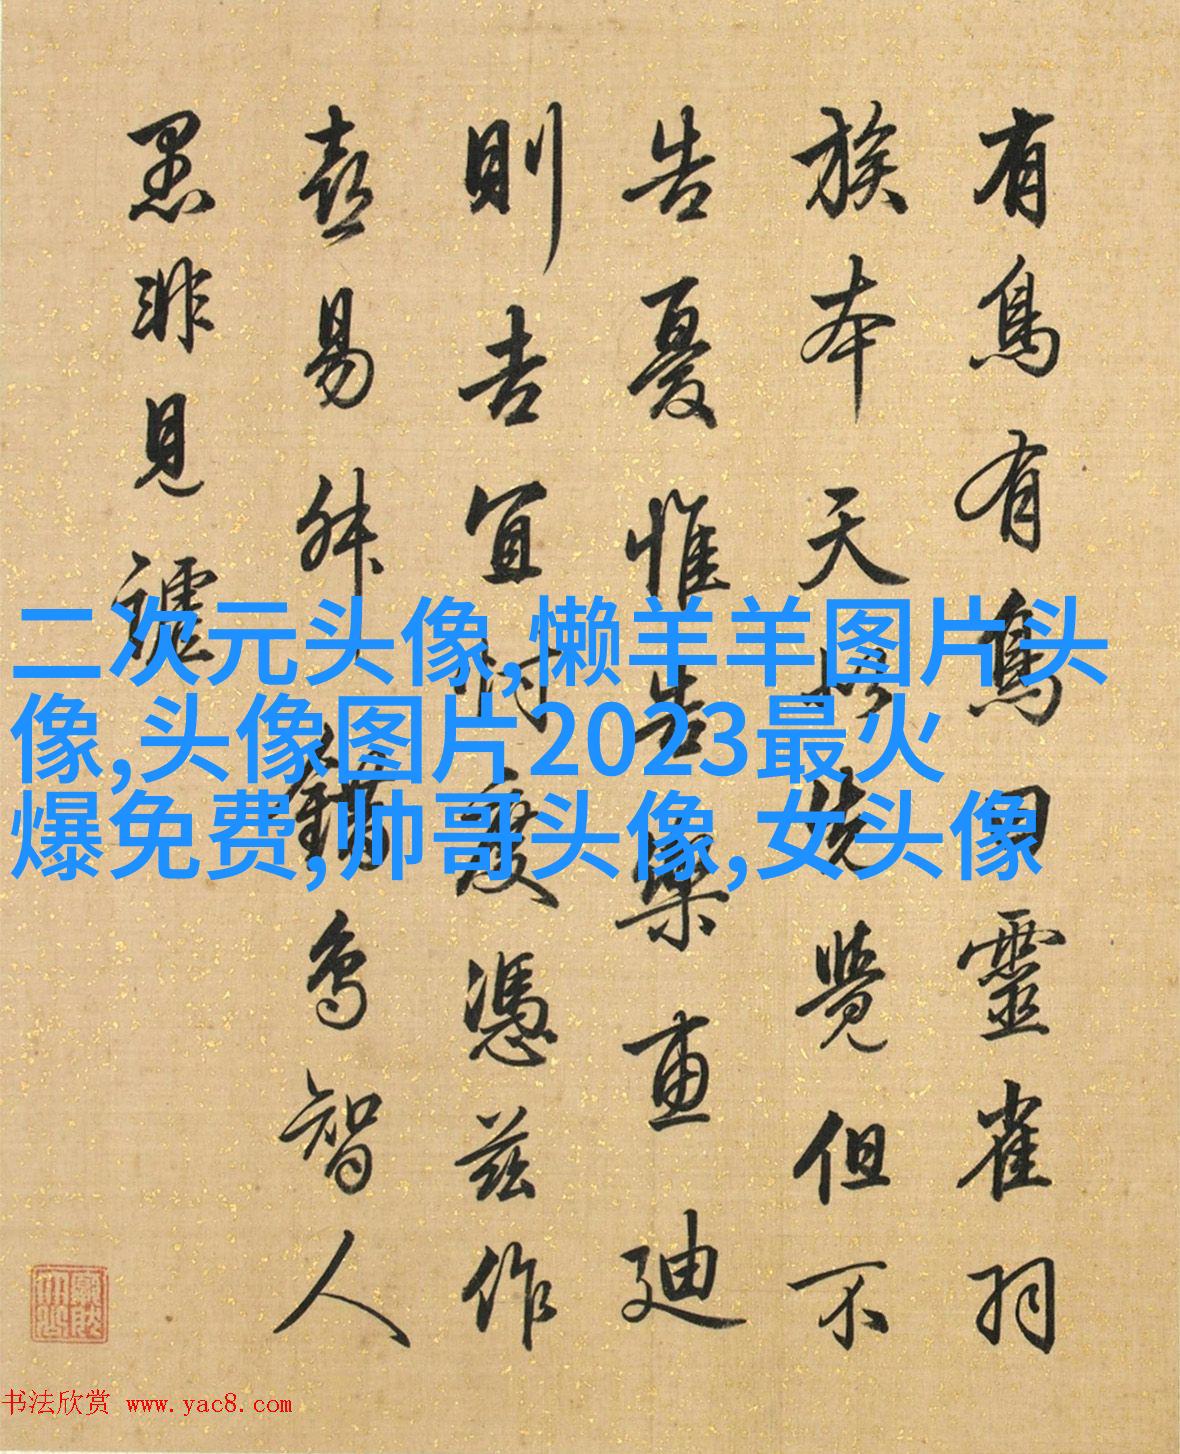 有鳥有鳥曰靈雀羽
族本天然先覺但不
告憂惟告樂惠迪
則吉宜
慶憑茲作
喜易
為智人
愚非見
二次元头像,懒羊羊图片头
像,头像图片2023最火
爆免费,帅哥头像,女头像
书法欣赏 www.yac8.com